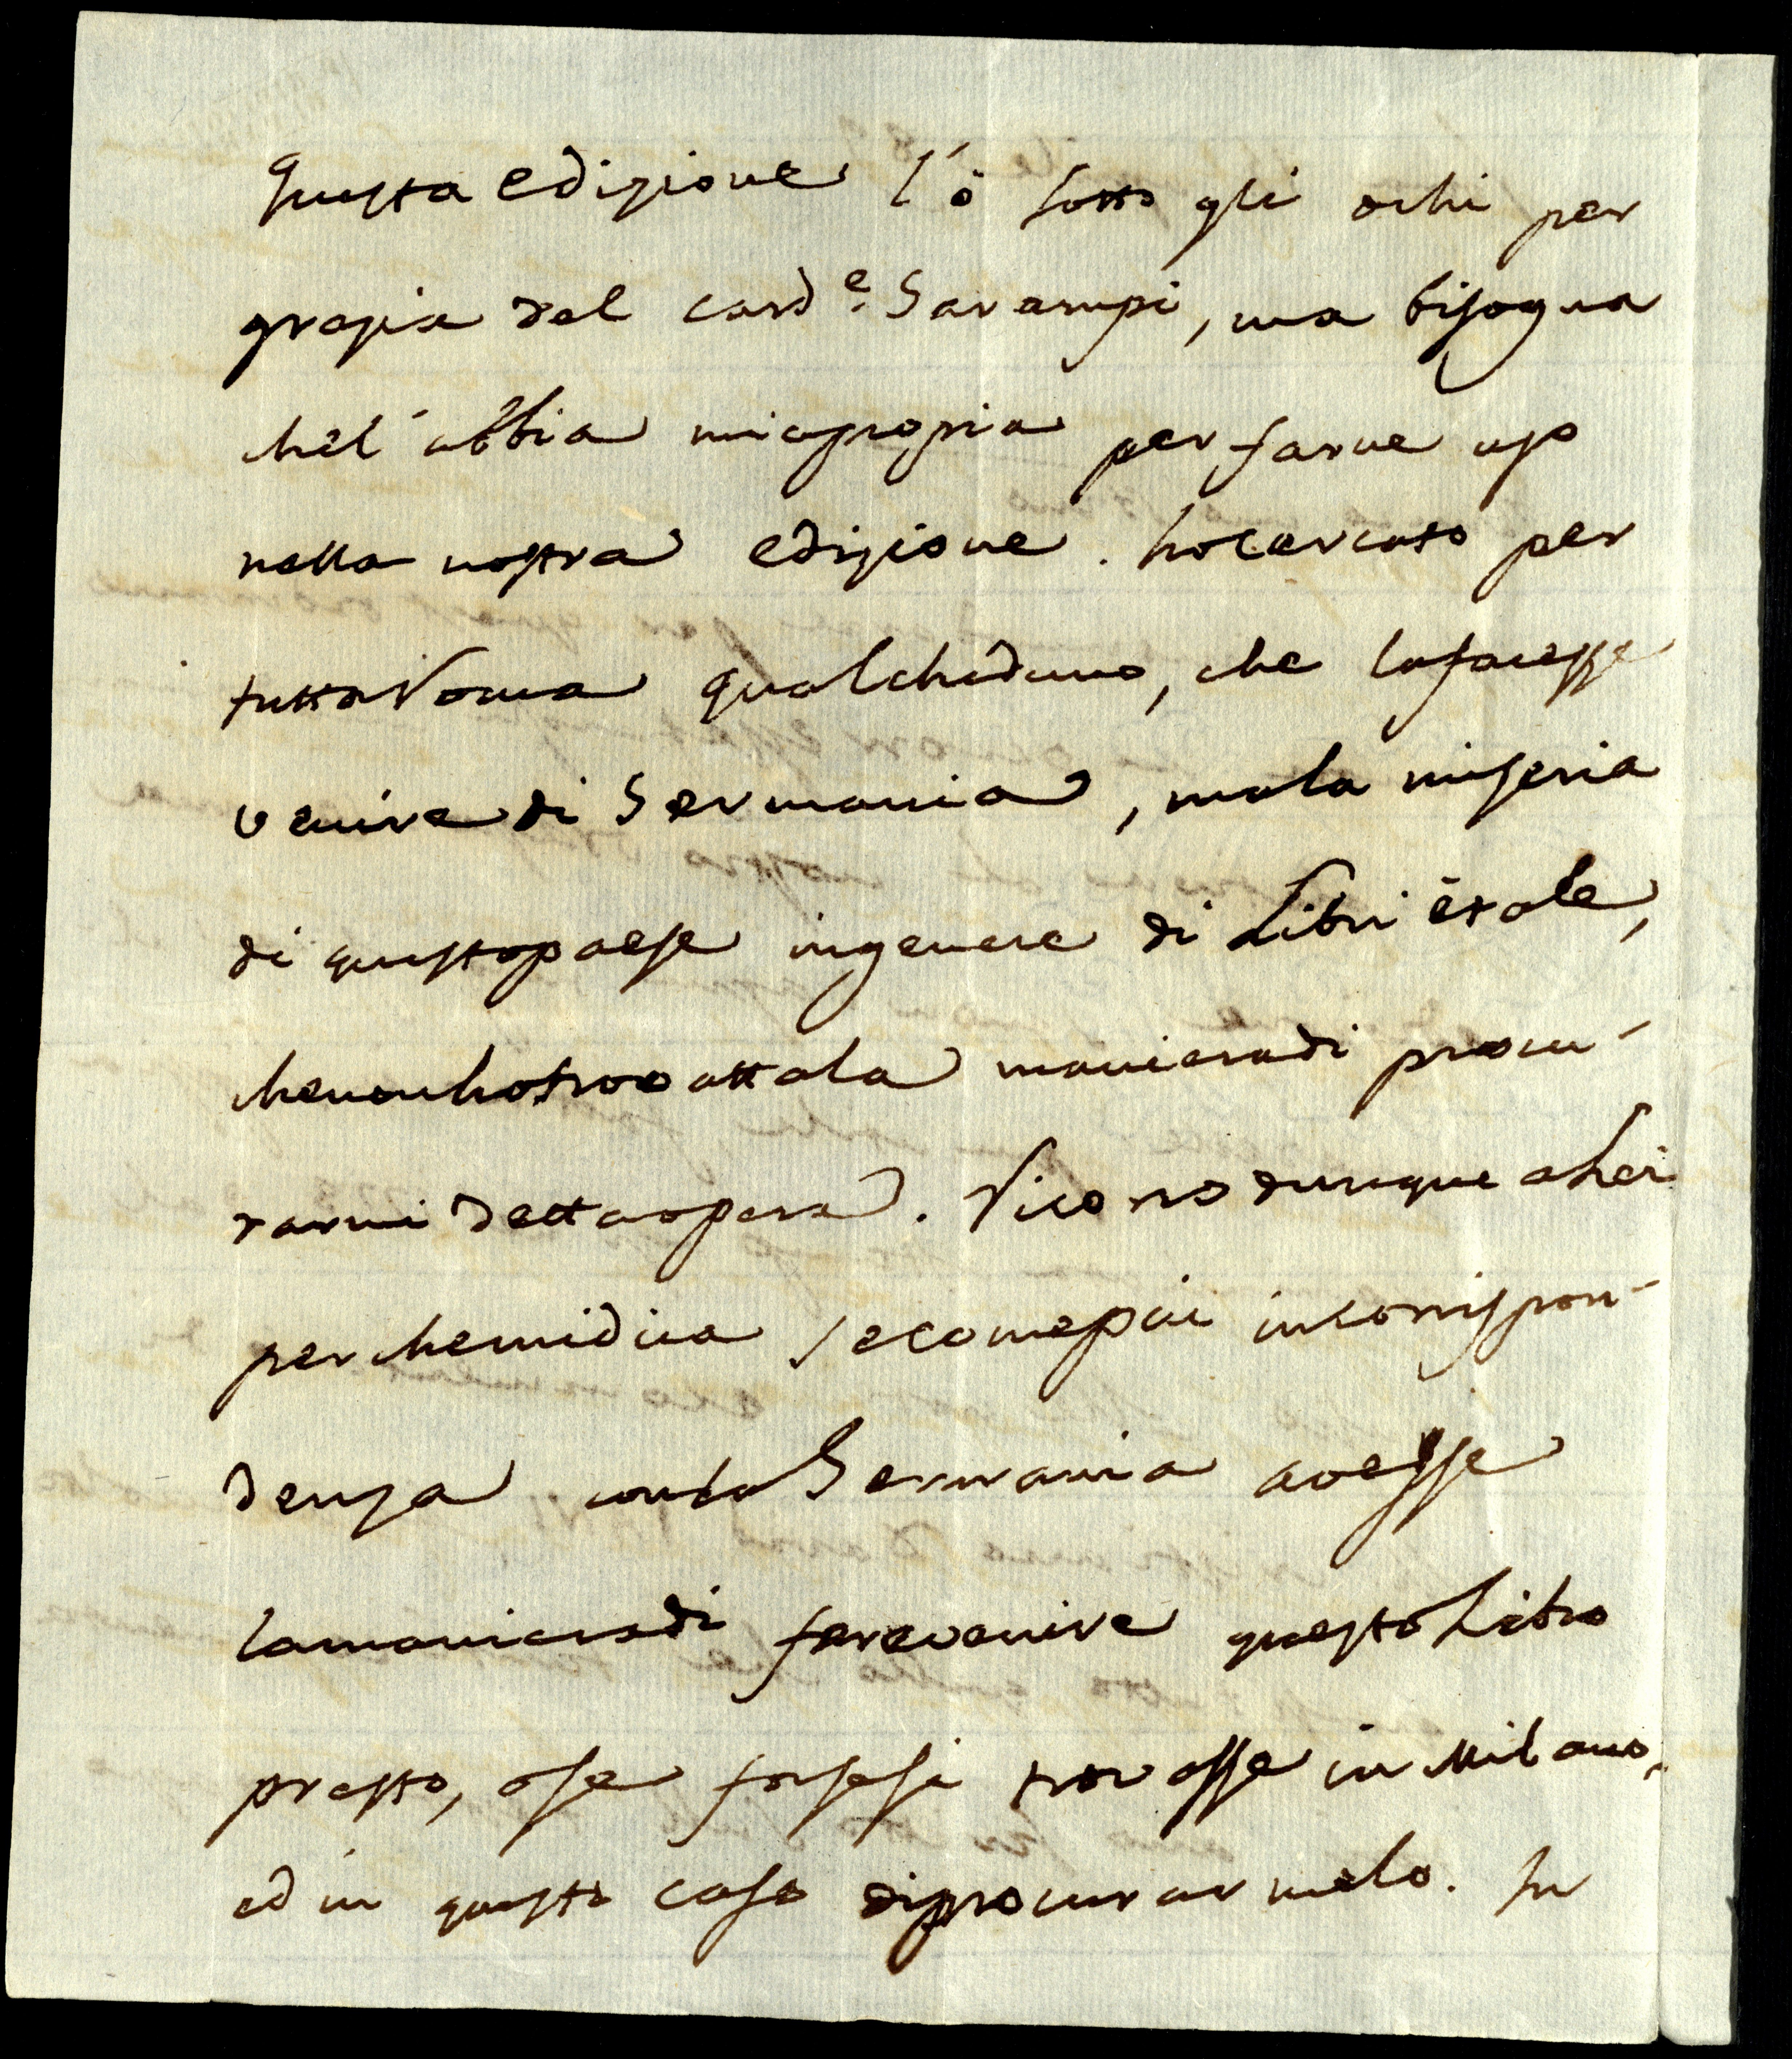 questa edizione l'ò sotto gli ochi per
grazia del card.e Garampi, ma bisogna
che l'abbia mia propria per farne uso
nella nostra edizione. ho cercato per
tutta Roma qualcheduno, che la facesse
venire di Germania, ma la miseria
di questo paese in genere di Libri è tale,
che non ho trovatta la maniera di procu-
rarmi detta opera. Ricorro dunque a Lei
perche mi dica se come più in corrispon-
denza con la Germania avesse
la maniera di fare venire questo Libro
presto, o se forse si trovasse in Milano,
ed in questo caso di procurarmelo. In